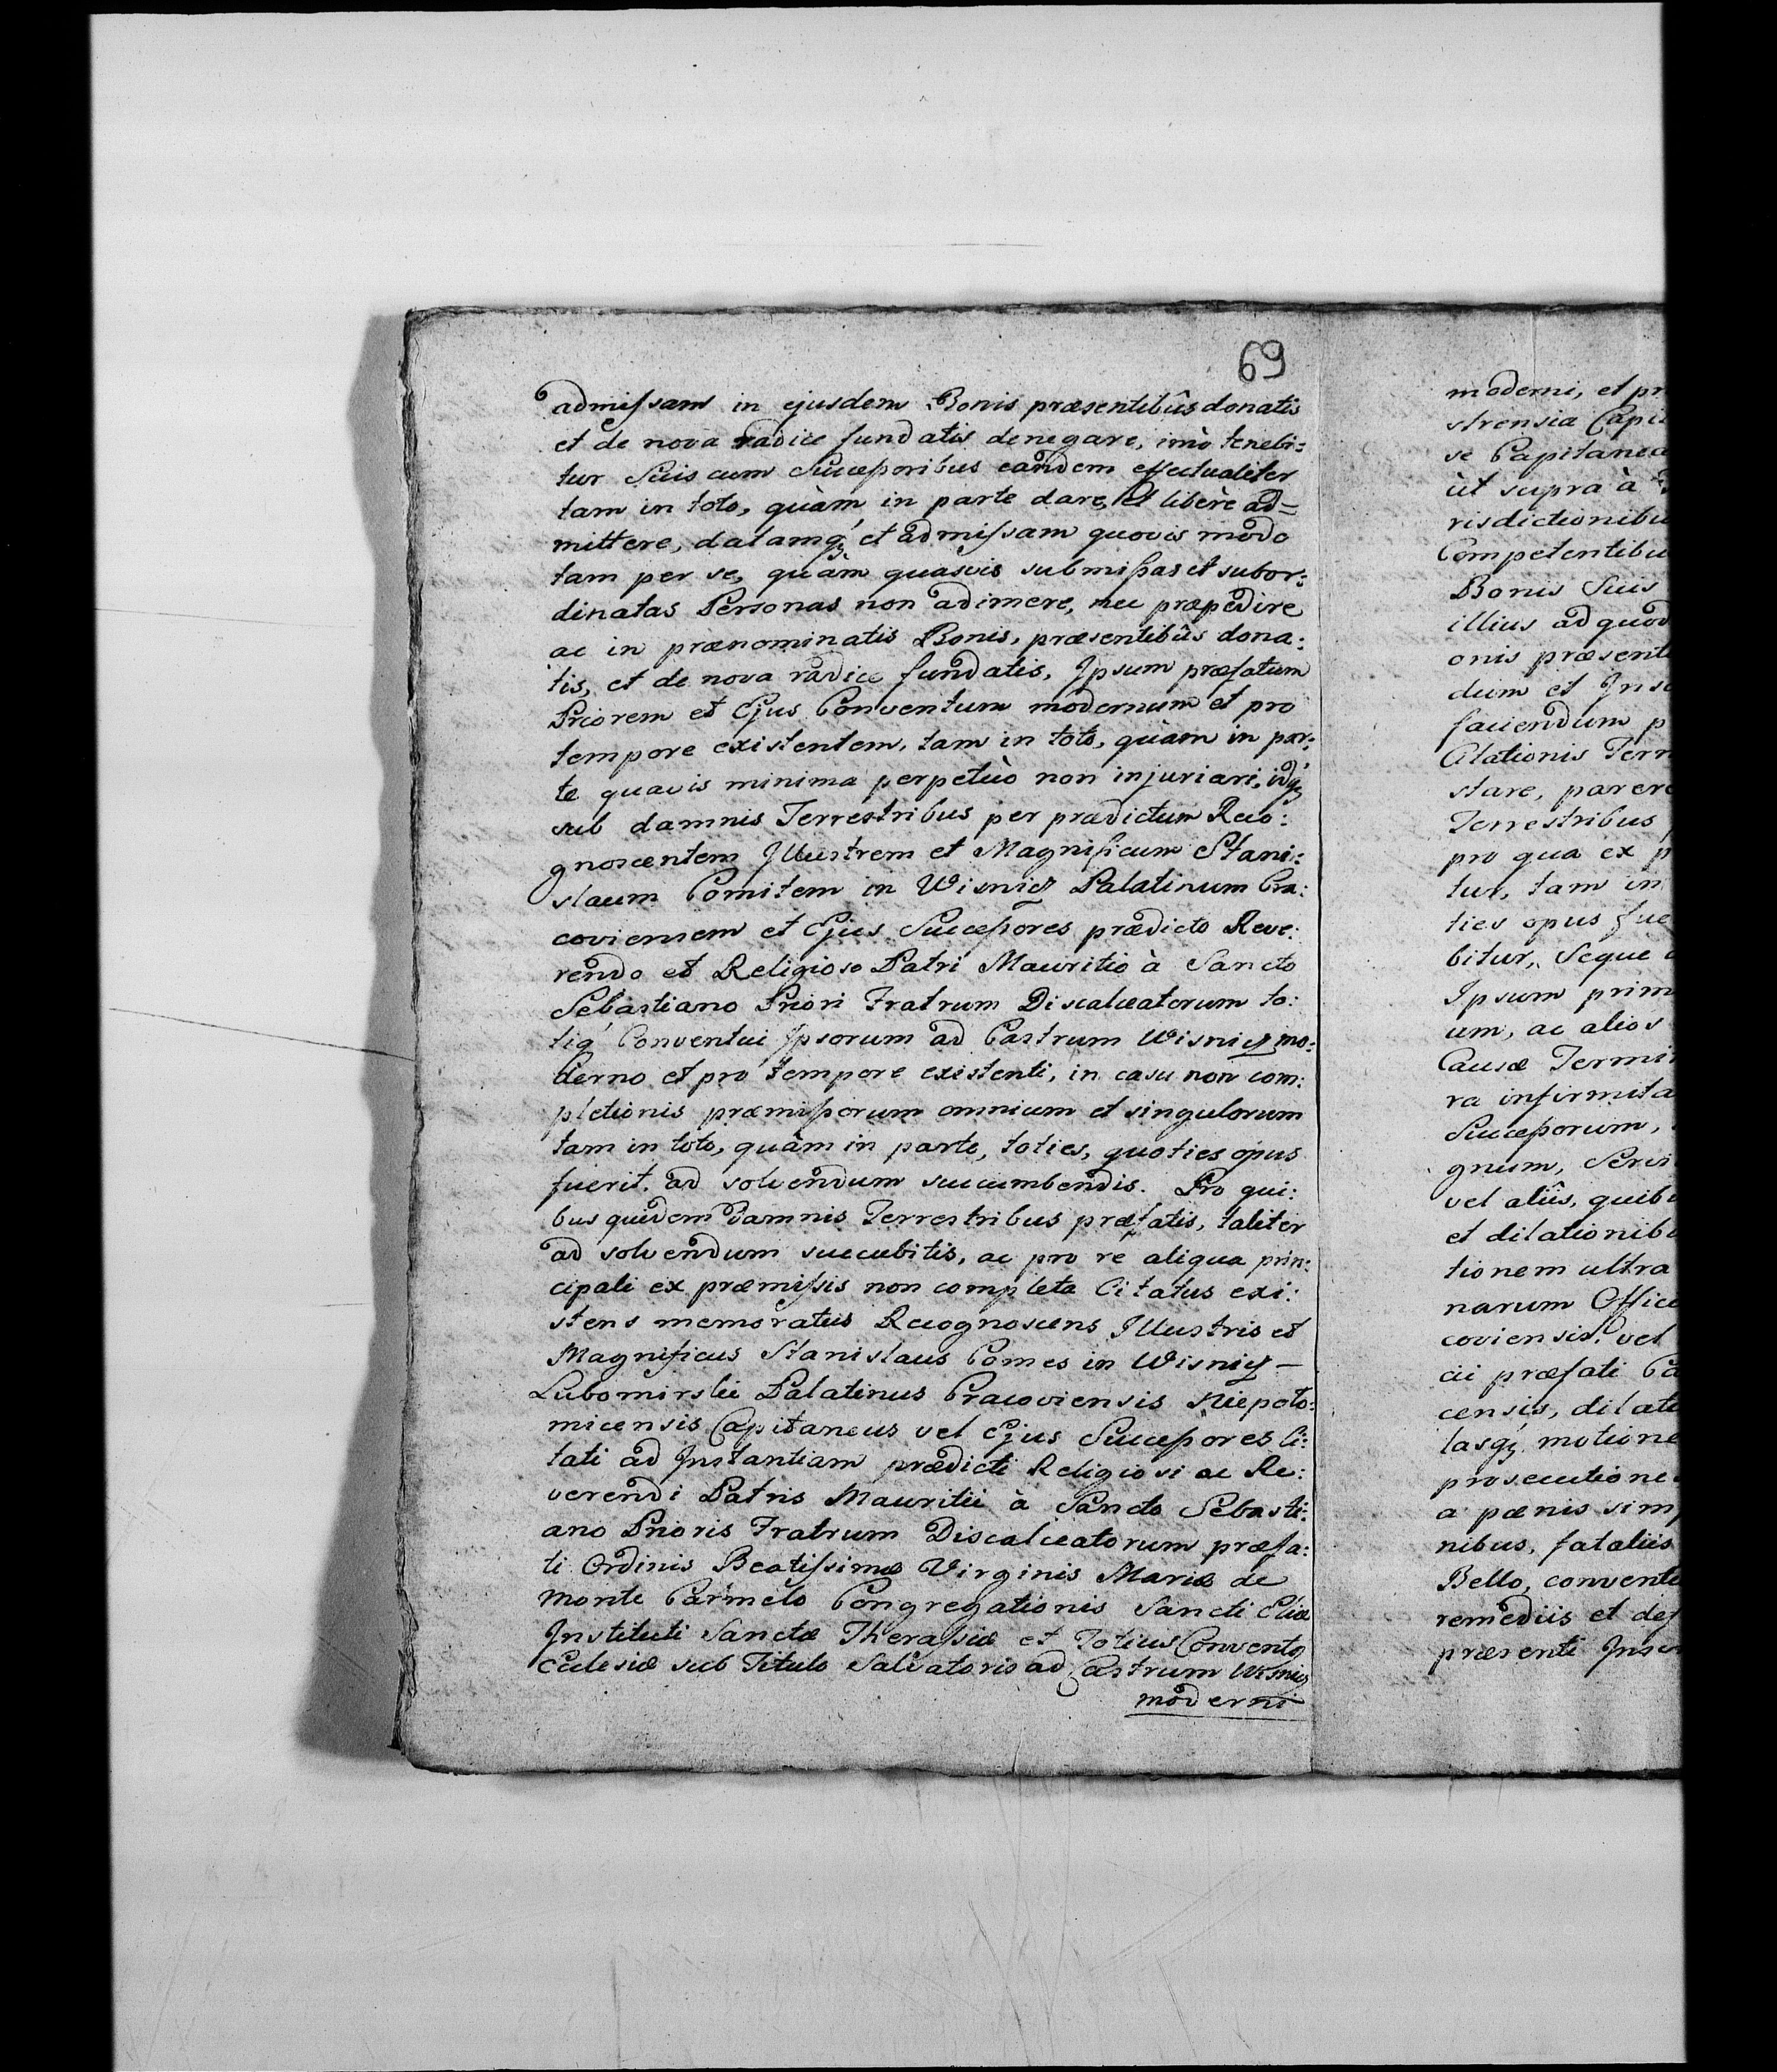 69
admissam in ejusdem Bonis præsentibûs donatis
et de nova radice fundatis denegare, imò tenebi:
tur Suis cum Successoribus eandem effectualiter
tam in toto, quàm in parte dare, et libère ad=
mittere, datamq; et admissam quovis modo
tam per se, quàm quasvis submissas et subor:
dinatas Personas non adimere, nec præpedire
ac in prænominatis Bonis, præsentibûs dona:
tis, et de nova radice fundatis, Ipsum præfatum
Priorem et Ejus Conventum modernum et pro
tempore existentem, tam in toto, quàm in par:
te quavis minima perpetuò non injuriari, idq;
sub damnis Terrestribus per prædictum Reco:
gnoscentem Illustrem et Magnificum Stani:
slaum Comitem in Wisnicz Palatinum Cra:
coviensem et Ejus Successores prædicto Reve:
rendo et Religioso Patri Mauritio à Sancto
Sebastiano Priori Fratrum Discalceatorum to:
tiq Conventui Ipsorum ad Castrum Wisnicz mo:
derno et pro tempore existenti, in casu non com:
pletionis præmissorum omnium et singulorum
tam in toto, quàm in parte, toties, quoties opus
fuerit. ad solvendum succumbendis. Pro qui:
bus quidem damnis Terrestribus præfatis, taliter
ad solvendum succubitis, ac pro re aliqua prin:
cipali ex præmissis non completa Citatus exi:
stens memoratus Recognoscens Illustris et
Magnificus Stanislaus Comes in Wisnicz —
Lubomirski Palatinus Cracoviensis Niepoto:
micensis Capitaneus vel Ejus Successores Ci:
tati ad Instantiam prædicti Religiosi ac Re:
verendi Patris Mauritii à Sancto Sebasti:
ano Prioris Fratrum Discalceatorum præfa:
ti Ordinis Beatissimæ Virginis Mariæ de
Monte Carmelo Congregationis Sancti Eliæ
Instituti Sanctæ Therassiæ et Totius Convento
Ecclesiæ sub Titulo Salvatoris ad Castrum Wisnicz
moderni
moderni, et pr
strensia Capit
se Capitanea
ùt supra à
risdictionibu
Competentibu
Bonis Suis
illius ad quod
onis præsent
dum et Insc
faciendum p
Citationis Terr
stare, parere
Terrestribus
pro qua ex p
tur, tam in
ties opus fue
bitur, Seque
Ipsum prim
um, ac alios
Causæ Termi
ra infirmita
Successorum,
gnum, Servi
vel aliis, quib
et dilationibu
tionem ultra
narum Offici
coviensis, vel
cii præfati Ca
censis, dilati
lasq; motione
prosecutione
a pænis sim
nibus, fataliis
Bello, convent
remediis et def
præsenti Inscr